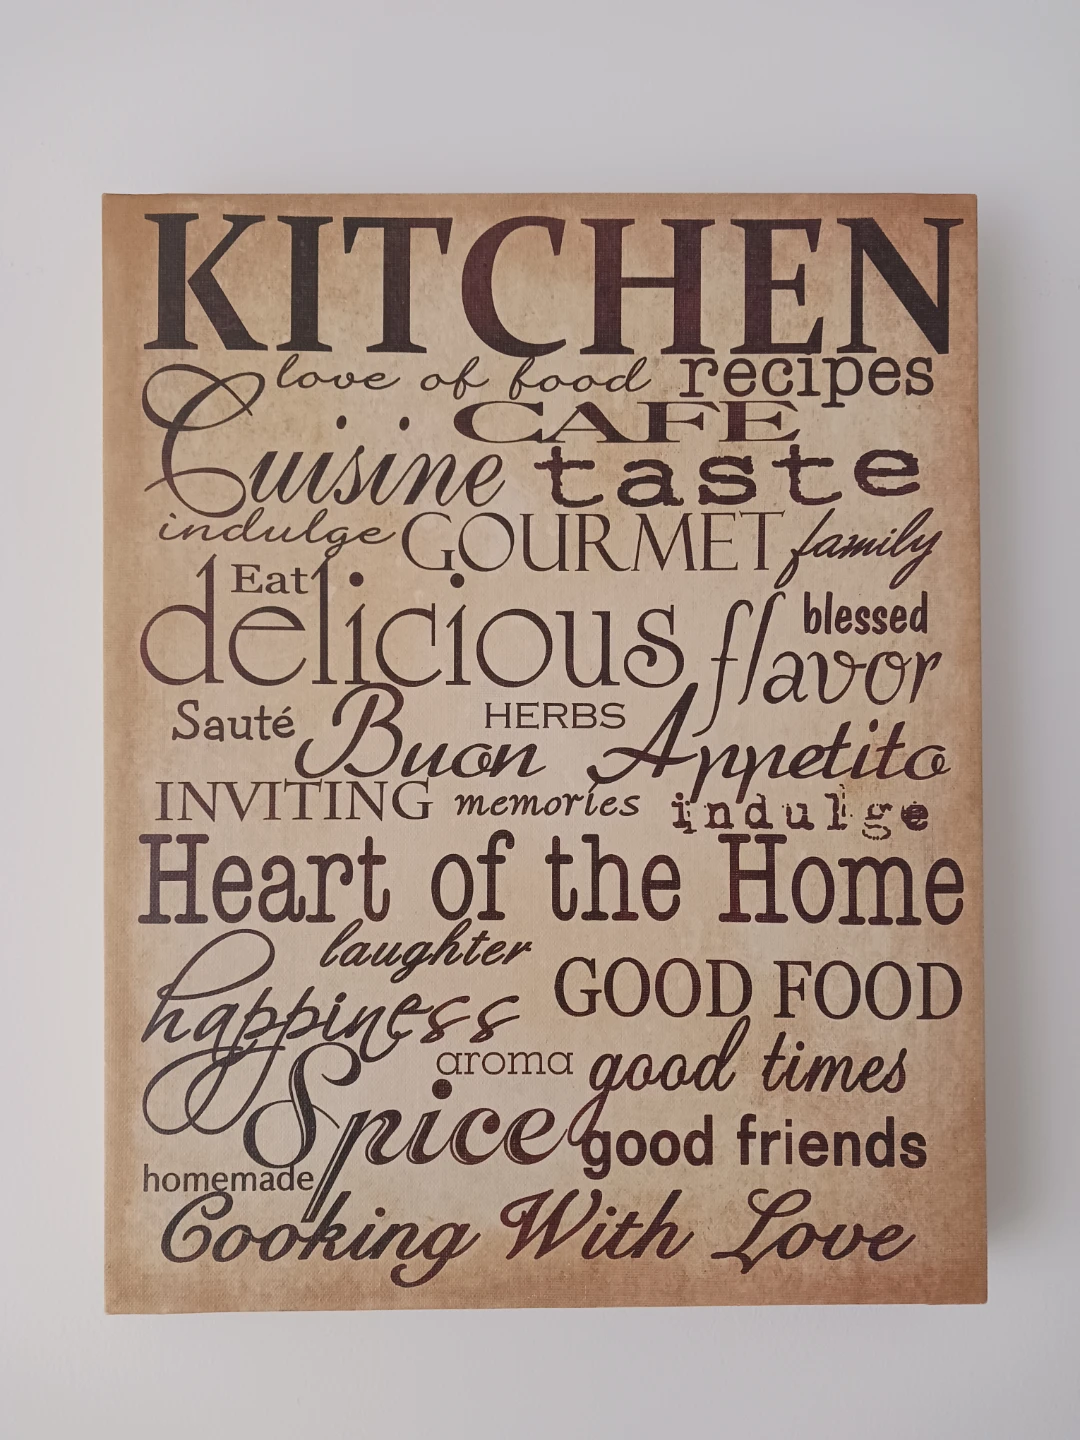 KITCHEN
love of food recipes
CAFE
Cuisine taste
indulge GOURMET family
Eat
delicious blessed
flavor
Sauté Buon HERBS Appetito
INVITING memories indulge
Heart of the Home
laughter
happiness GOOD FOOD
aroma good times
Spice good friends
homemade
Cooking With Love